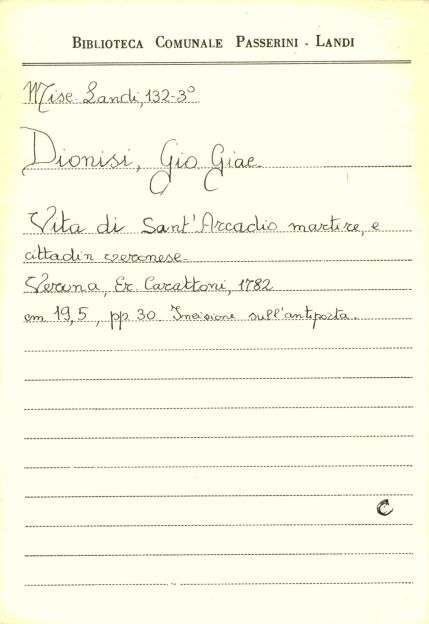 BIBLIOTECA COMUNALE PASSERINI - LANDI
Misc Landi, 132-3°
Dionisi, Gio Giac.
Vita di Sant'Arcadio martire, e
cittadin veronese.
Verona, Er. Carattoni, 1782
cm 19,5, pp 30 Incisione sull'antiporta.
C